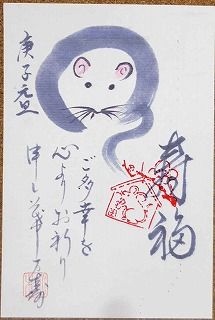 寿福
ご多幸を
心よりお祈り
申し上げます
庚子元旦